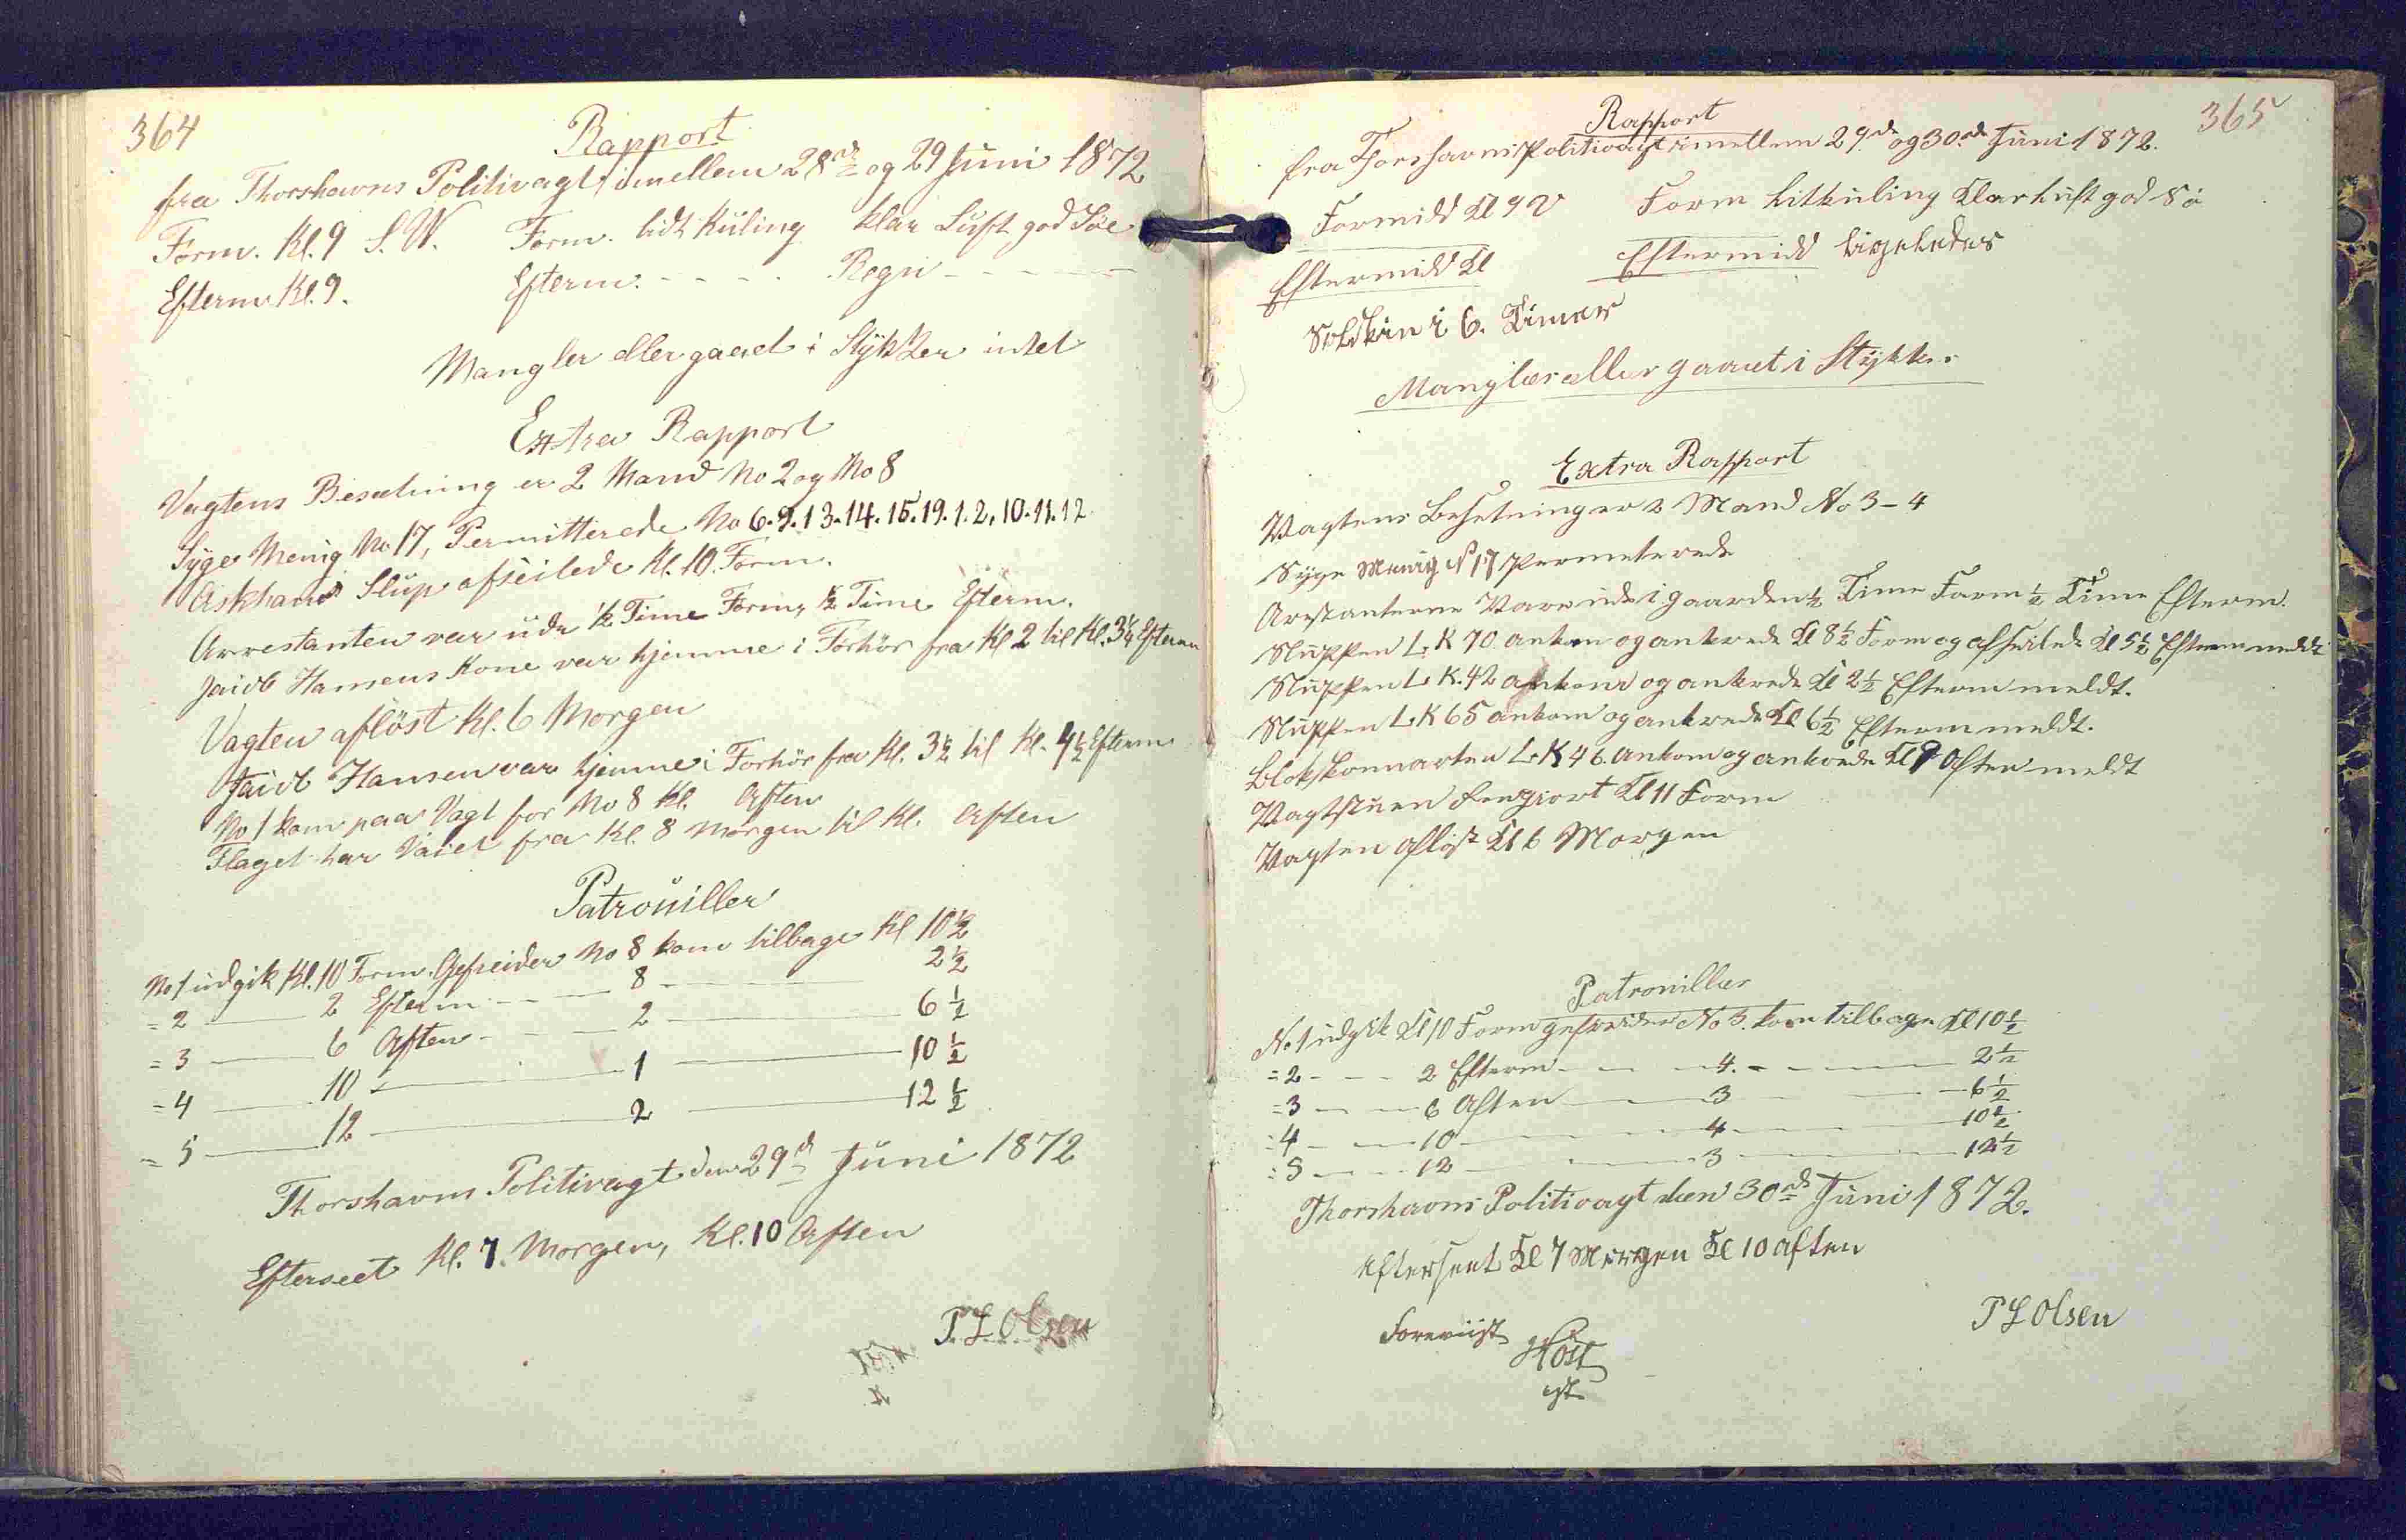 364
Rapport
fra Thorshavns Politivagt imellem 28de og 29 Juni 1872
Form. Kl. 9 S.W. Form. lidt Kuling klar Luft god Søe
Efterm Kl. 9. Efterm. - - - - Regn - - - -
Mangler eller gaaet i Stykker intet
Extra Rapport
Vagtens Besætning er 2 Mand No 2 og No 8
Syge Menig No 17, Permitterede No 6. 9. 13. 14. 15. 19. 1. 2, 10. 11. 12
Askhams Slup afseilede Kl. 10. Form.
Arrestanten var ude ½ Time Form, ½ Time Efterm.
Jacob Hansens Kone var hjemme i Forhör fra Kl 2 til Kl. 3¼ Efterm
Vagten aflöst Kl. 6 Morgen
Jacob Hansen var hjemme i Forhör fra Kl. 3½ til Kl. 4½ Efterm
No 1 kom paa Vagt for No 8 Kl. Aften
Flaget har Vaiet fra Kl. 8 Morgen til Kl. Aften
Patrouiller
No 1 udgik Kl. 10 Form. Gefreider No 8 kom tilbage Kl 10½
= 2 — 2 Efterm — 8 — 2½
= 3 — 6 Aften — 2 — 6½
= 4 — 10 — 1 — 10½
= 5 — 12 — 2 — 12½
Thorshavns Politivagt den 29de Juni 1872
Efterseet Kl. 7. Morgen, Kl. 10 Aften
P. L Olsen
365
Rapport
fra Thorshavns Politivagt imellem 29de og 30de Juni 1872.
Formidd Kl 9 V Form Litkuling Klar Luft god Sö
Eftermidd Kl Eftermidd Ligeledes
Solskin i 6. Timer
Mangler eller gaaet i Stykker
Extra Rapport
Vagtens Besetning er 2 Mand No 3-4
Syge Menig N 17 Permeterede
Arestanterne Vare ude i gaarden ½ Time Form ½ Time Efterm.
Sluppen L. K 70 ankom og ankrede Kl 8½ Form og afseilede Kl 5½ Efterm meldt
Sluppen L K. 42 ankom og ankrede Kl 2½ Efterm meldt.
Sluppen L. K 65 ankom og ankrede Kl 6½ Efterm meldt.
L. K 46. ankom og ankrede Kl 9 Aften meldt
Vagtstuen Rengiort Kl 11 Form
Vagten aflöst Kl 6 Morgen
Patrouiller
No 1 udgik Kl 10 Form gefreider No 3. kom tilbage Kl 10½
= 2 - - - 2 Efterm - - 4. - - 2½
= 3 - - - 6 Aften — 3 — 6½
= 4 - - - 10 — 4 — 10½
= 5 - - - 12 — 3 — 12½
Thorshavns Politivagt den 30de Juni 1872.
Efterseet Kl 7 Morgen Kl 10 Aften
P L Olsen
Foreviist
Höst